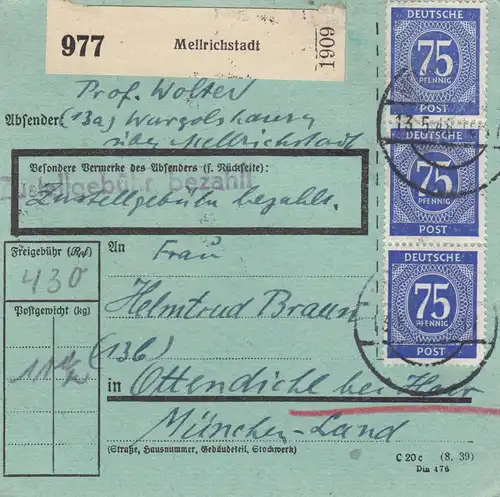 977 Mellrichstadt
1909
Prof. Wolter
Absender: (13a) Wargolshausen
über Mellrichstadt
Besondere Vermerke des Absenders (s. Rückseite):
Zustellgebühr bezahlt
Zustellgebühr bezahlt.
Freigebühr (Rpf)
430
Postgewicht (kg)
11 1/2
An
Frau
Helmtrud Braun
(13b)
in Ottendichl bei Haar
München-Land
(Straße, Hausnummer, Gebäudeteil, Stockwerk)
C 20 c (8. 39)
Din 476
DEUTSCHE
75
PFENNIG
POST
13.5.
DEUTSCHE
75
PFENNIG
POST
DEUTSCHE
75
PFENNIG
POST